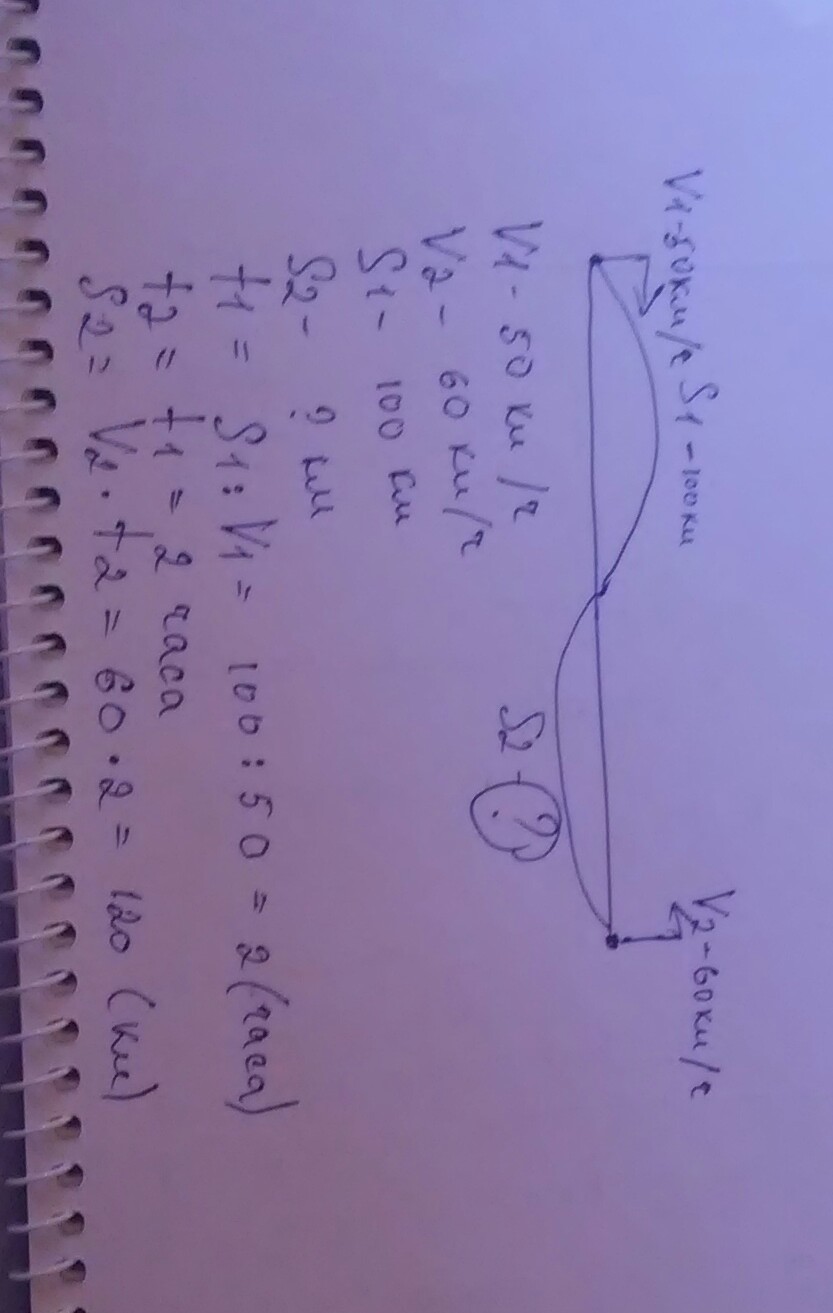 V1-50км/ч S1-100км V2-60км/ч
S2-?
V1- 50 км/ч
V2- 60 км/ч
S1- 100 км
S2- ? км
t1 = S1:V1 = 100:50 = 2 (часа)
t2 = t1 = 2 часа
S2 = V2·t2 = 60·2 = 120 (км)